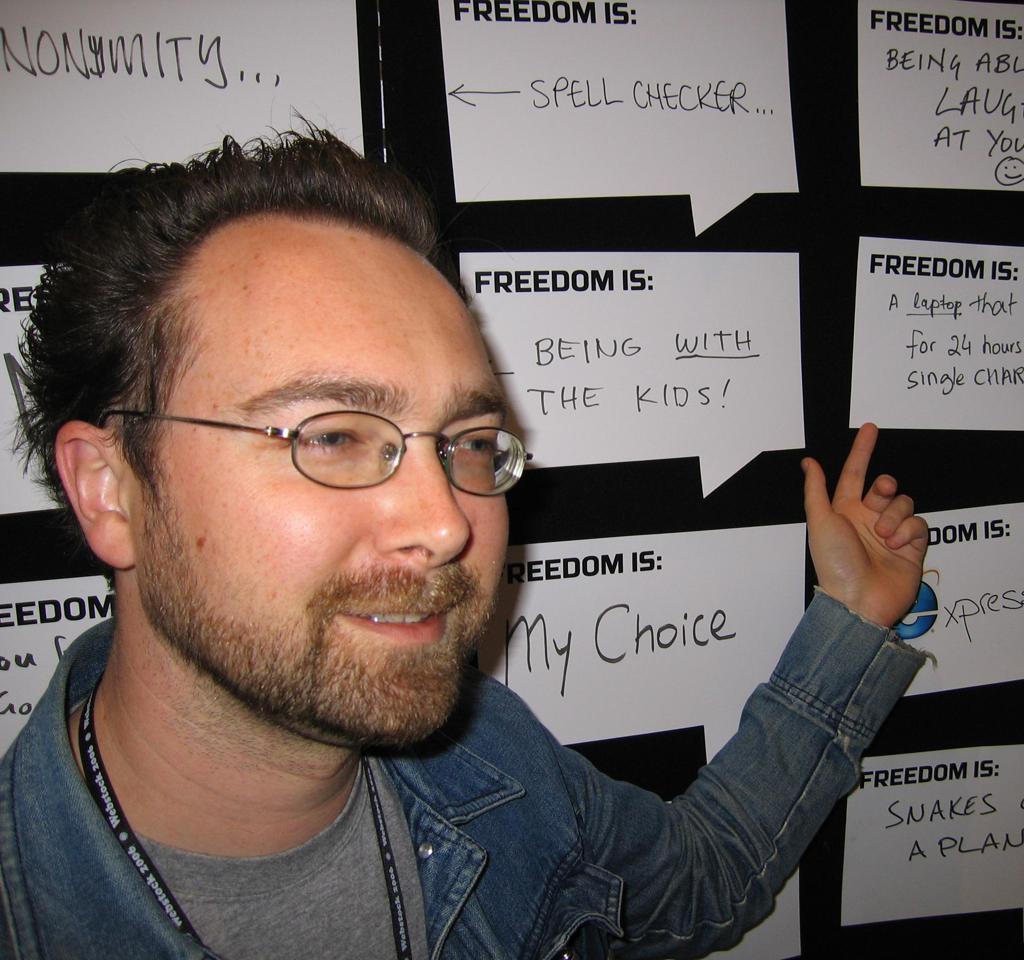 NONYMITY...
FREEDOM IS:
← SPELL CHECKER...
FREEDOM IS:
BEING ABL
LAUG
AT YOU
FREEDOM IS:
BEING WITH
THE KIDS!
FREEDOM IS:
A laptop that
for 24 hours
single CHAR
REEDOM IS:
My Choice
DOM IS:
express
EEDOM
FREEDOM IS:
SNAKES
A PLAN
Webstock 2006
Webstock 2006
Webstock